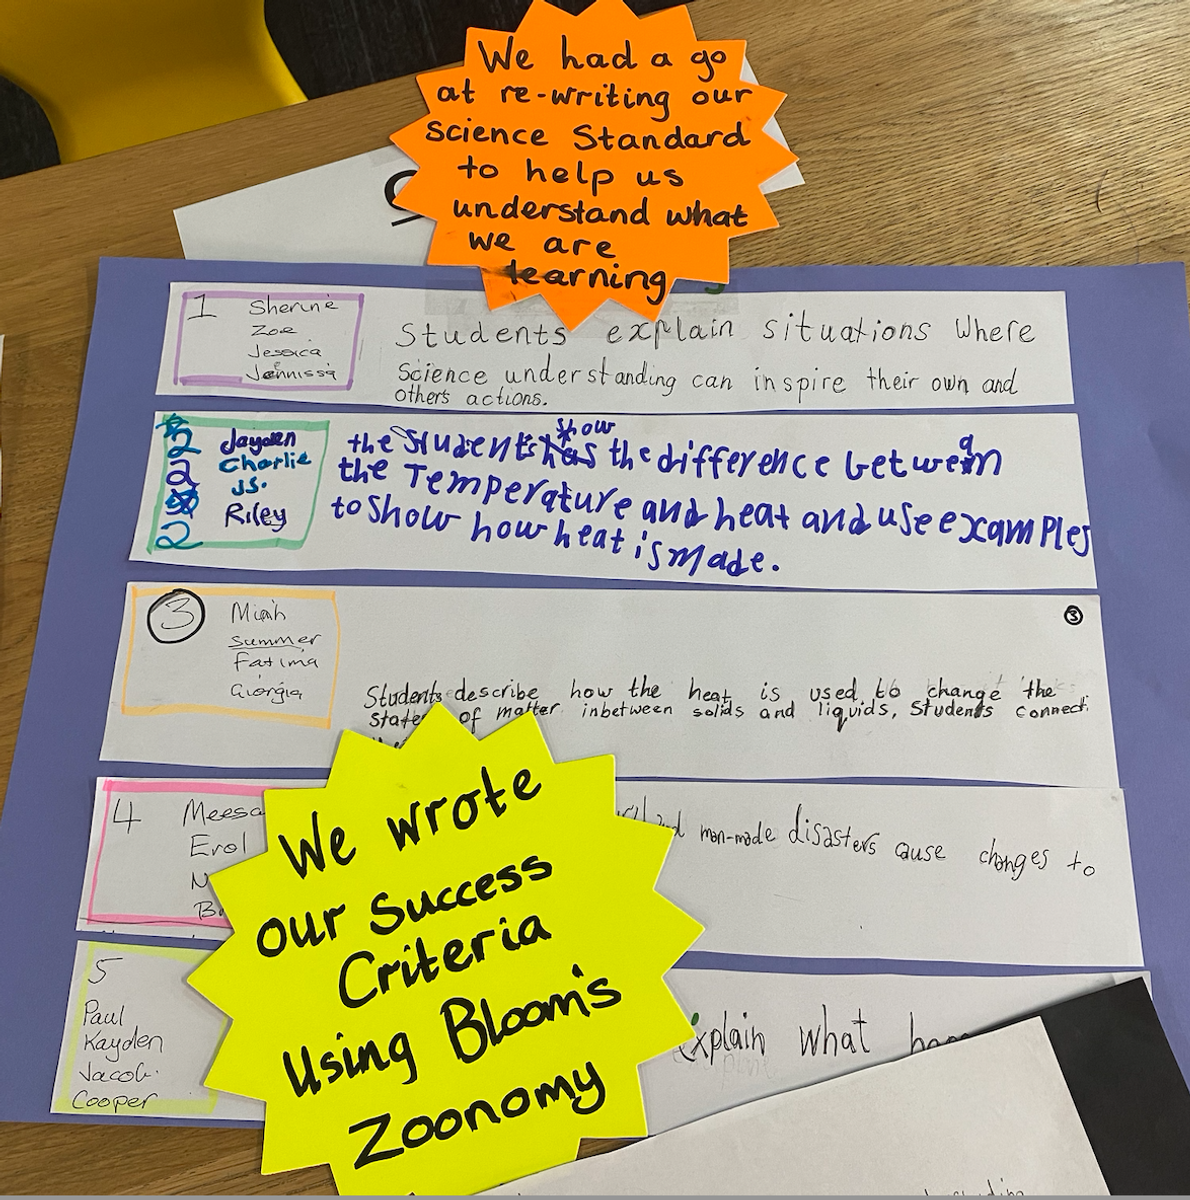 We had a go
at re-writing our
Science Standard
to help us
understand what
we are
learning
1
Sherine
Zoe
Jessica
Jennissa
Students explain situations where
Science understanding can inspire their own and
others actions.
2 2 2
Jayden
Charlie
JS.
Riley
the students show the difference between
the Temperature and heat and use examples
to show how heat is made.
3
Miah
Summer
Fatima
Giorgia
3
Students describe how the heat is used to change the
state of matter inbetween solids and liquids, Students connect
4
Meesa
Erol
man-made disasters cause changes to
5
Paul
Kayden
Jacob.
Cooper
explain what
We wrote
our Success
Criteria
using Bloom's
Zoonomy